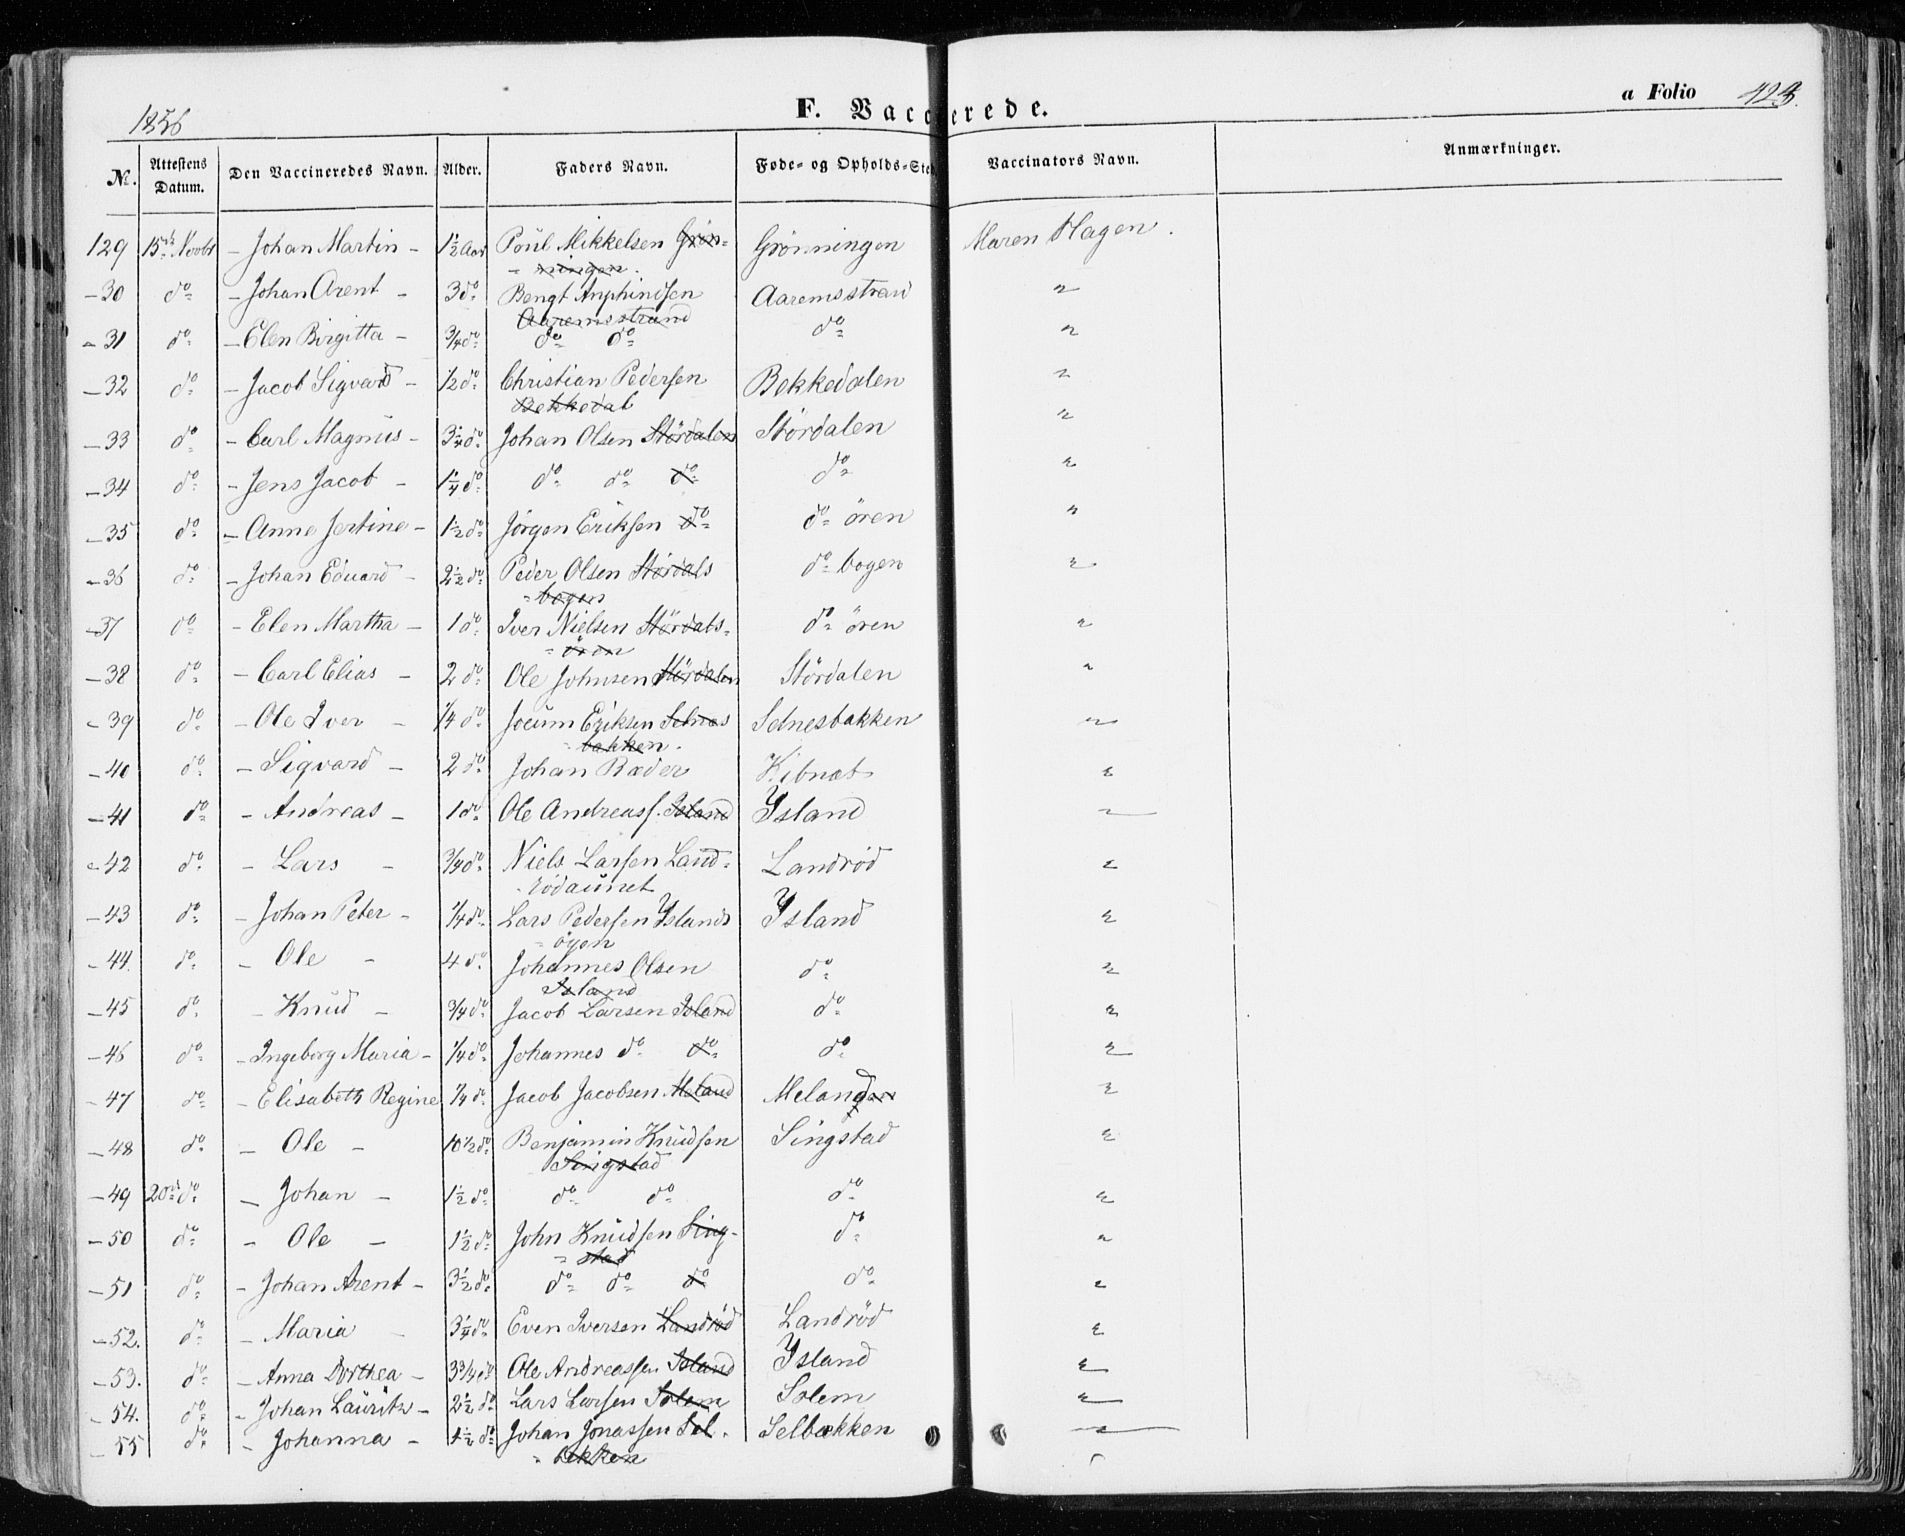 1856
F. Vaccinerede.
a Folio 423.
No. Attestens Datum. Den Vaccineredes Navn. Alder. Faders Navn. Føde- og Opholds-Sted Vaccinators Navn. Anmærkninger.
129 15de Novbr - Johan Martin - 1½ Aar Poul Mikkelsen Grøn- Grønningen Maren Hagen.
- ningen.
- 30 do - Johan Arent - 3 do Bengt Anphindsen Aaremsstrand "
Aaremsstrand
- 31 do - Elen Birgitta - 3/4 do do do do "
- 32 do - Jacob Sigvard - 1/2 do Christian Pedersen Bekkedalen "
Bekkedal
- 33 do - Carl Magnus - 3¼ do Johan Olsen Stördalen Stördalen "
- 34 do - Jens Jacob - 1¼ do do do do do "
- 35 do - Anne Jertine - 1½ do Jørgen Eriksen do do ören "
- 36 do - Johan Edvard - 2½ do Peder Olsen Störдals do bogen "
- bogen
- 37 do - Elen Martha - 1 do Iver Nielsen Stördals- do ören "
- ören
- 38 do - Carl Elias - 2 do Ole Johnsen Stördalen Stördalen "
- 39 do - Ole Iver - 1/4 do Jocum Eriksen Selnes Selnesbakken "
- bakken.
- 40 do - Sigvard - 2 do Johan Ræder Kibnæt "
- 41 do - Andreas - 1 do Ole Andreass. Island Ysland "
- 42 do - Lars - 3/4 do Niels Larsen Land- Landröd "
- rödaunet
- 43 do - Johan Peter - 1/4 do Lars Pedersen Yslands Ysland "
- öyen
- 44. do - Ole - 4 do Johannes Olsen do "
Island
- 45 do - Knud - 3/4 do Jacob Larsen Island do "
- 46 do - Ingeborg Maria - 1/4 do Johannes do do do "
- 47 do - Elisabeth Regine 1/4 do Jacob Jacobsen Meland Meland "
- 48 do - Ole - 10 1/2 do Benjamin Knudsen Singstad "
Singstad
- 49 20de do - Johan - 1½ do do do do "
- 50 do - Ole - 1½ do John Knudsen Sing- do "
- stad
- 51 do - Johan Arent - 3½ do do do do do "
- 52. do - Maria - 3¼ do Even Iversen Landröd Landröd "
- 53. do - Anna Dorthea - 3 3/4 do Ole Andreassen Island Ysland "
- 54. do - Johan Lauritz - 2½ do Lars Larsen Solem Solem "
- 55 do - Johanna - 1½ do Johan Jonassen Sel- Selbækken "
- bekken